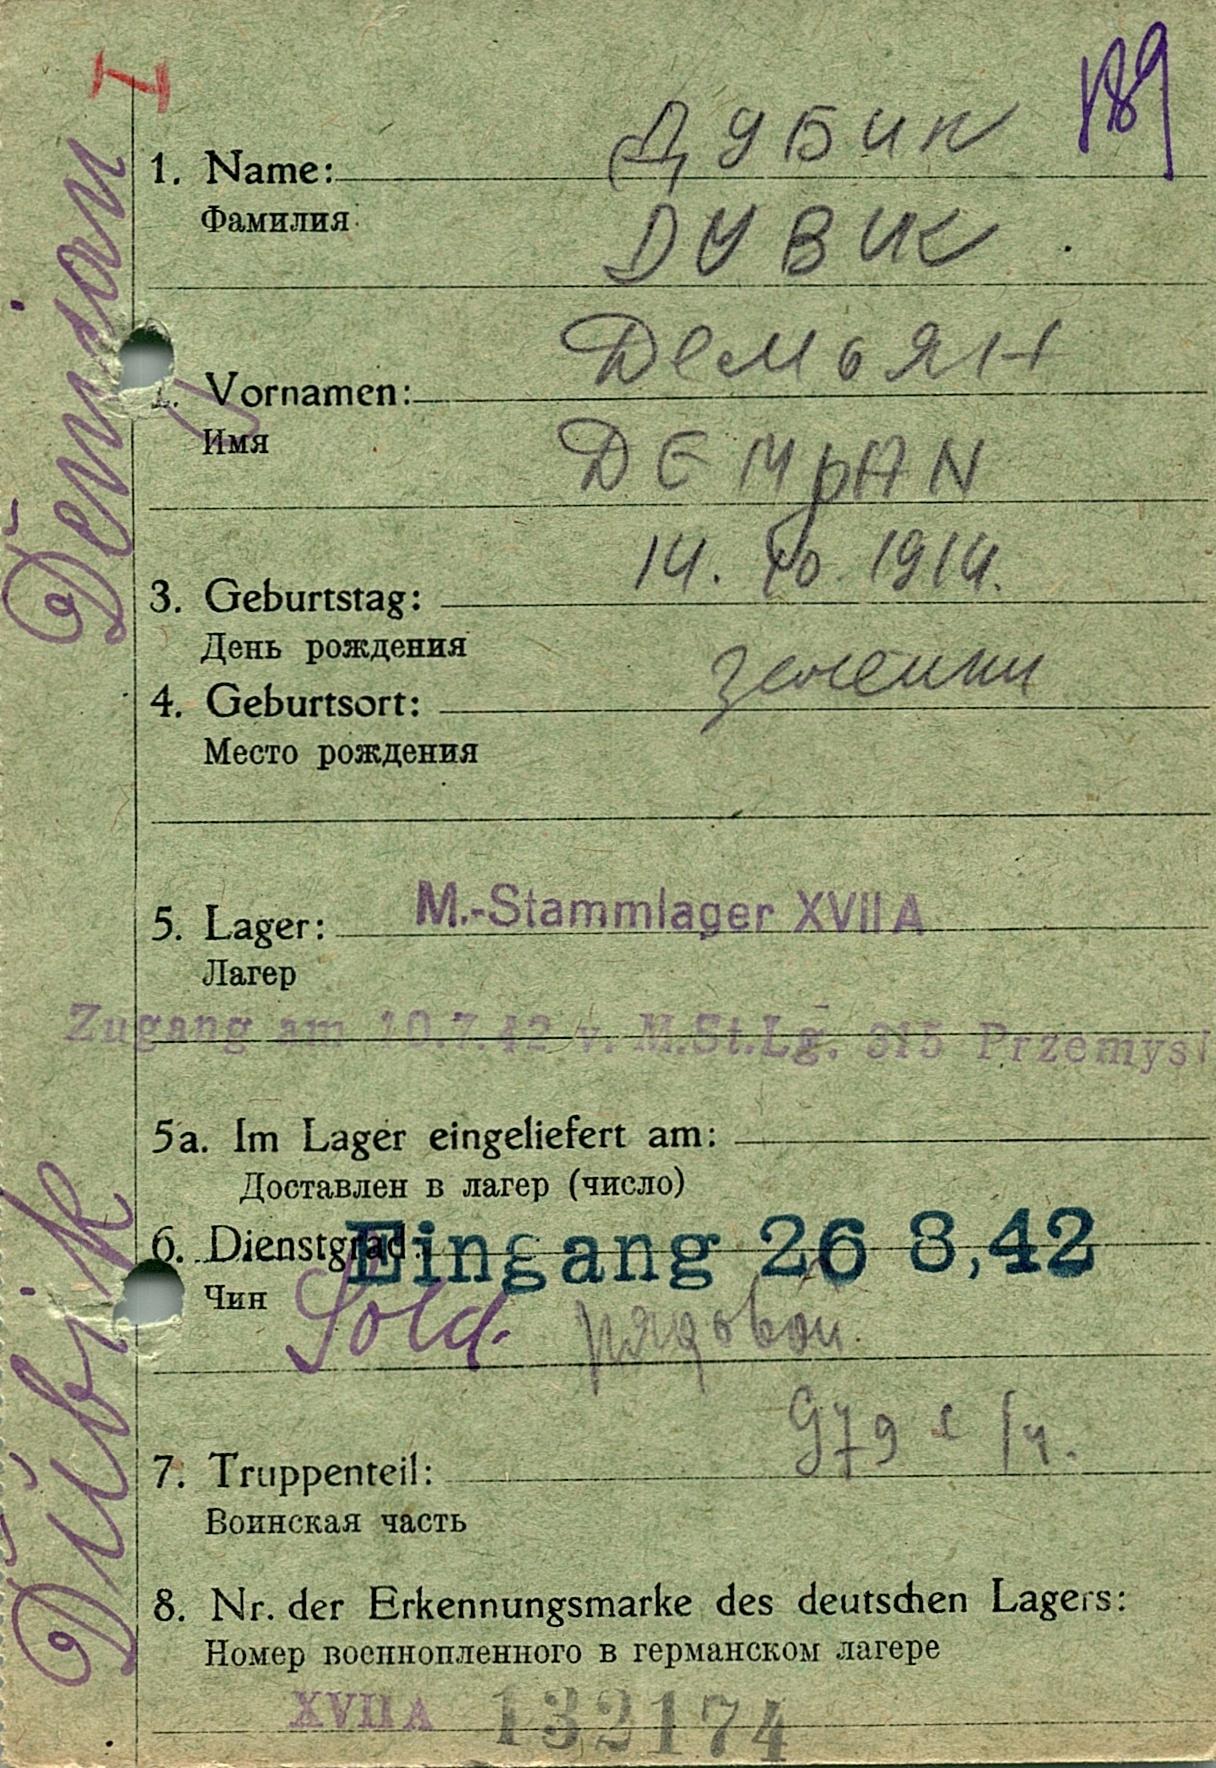 I
189
1. Name: ДУБИК
Фамилия
DUBIK
2. Vornamen: Демьян
Имя
DEMJAN
3. Geburtstag: 14. 10. 1914.
День рождения
4. Geburtsort:
Место рождения
5. Lager: M.-Stammlager XVII A
Лагер
Zugang am 10.7.42 v. M.St.Lg. 315 Przemysl
5a. Im Lager eingeliefert am:
Доставлен в лагер (число)
6. Dienstgrad: Eingang 26 8,42
Чин Sold. рядовой.
7. Truppenteil: 979
Воинская часть
8. Nr. der Erkennungsmarke des deutschen Lagers:
Номер военнопленного в германском лагере
XVII A 132174
Dubik Demjan